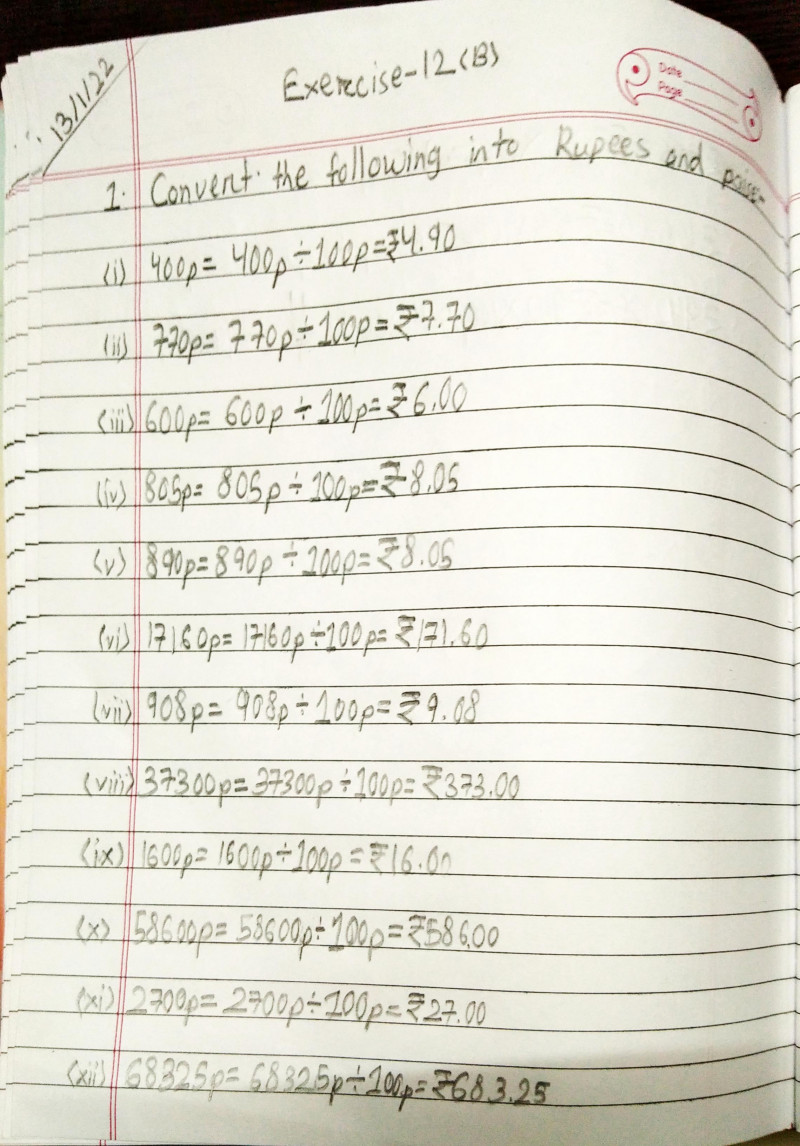 13/1/22
Exercise-12(B)
Date
Page
1. Convert the following into Rupees and paise-
(i) 400p= 400p÷100p=₹4.90
(ii) 770p= 770p÷100p=₹7.70
(iii) 600p= 600p÷100p=₹6.00
(iv) 805p= 805p÷100p=₹8.05
(v) 890p=890p÷100p=₹8.05
(vi) 17160p= 17160p÷100p=₹171.60
(vii) 908p= 908p÷100p=₹9.08
(viii) 37300p=37300p÷100p=₹373.00
(ix) 1600p= 1600p÷100p=₹16.00
(x) 58600p= 58600p÷100p=₹586.00
(xi) 2700p= 2700p÷100p=₹27.00
(xii) 68325p= 68325p÷100p=₹683.25